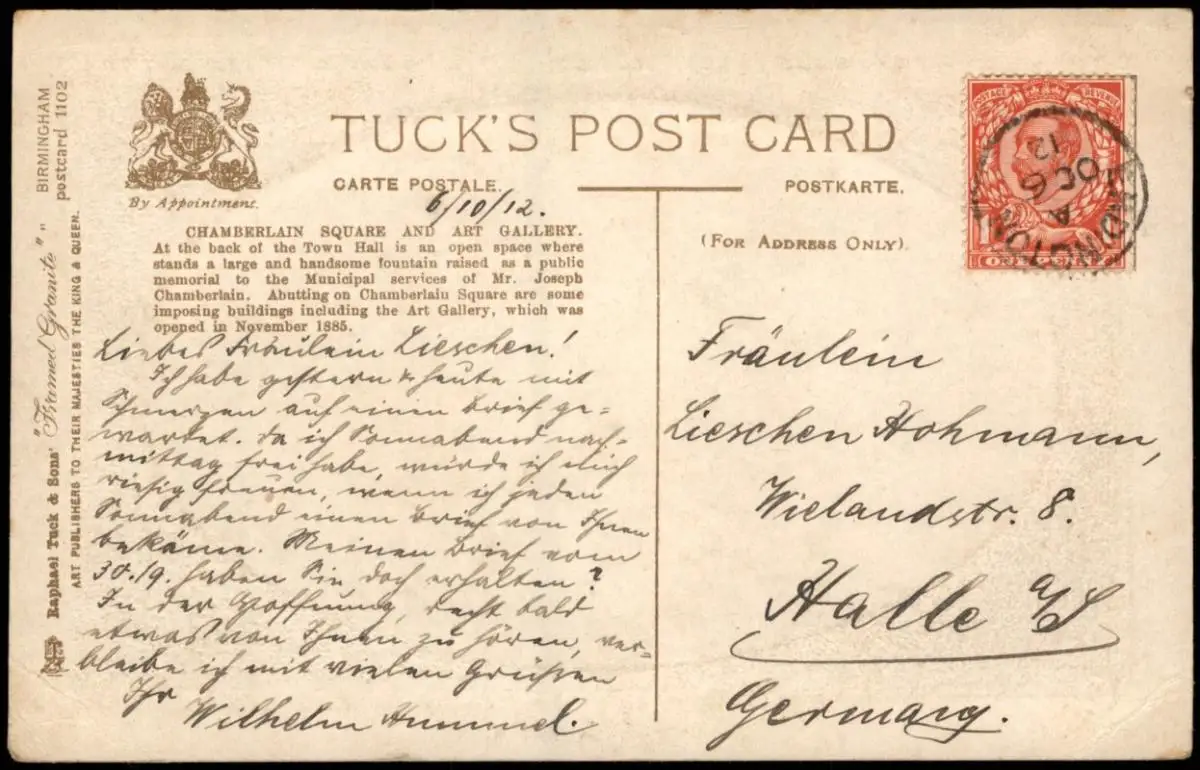 BIRMINGHAM
postcard 1102
Raphael Tuck & Sons' "Framed Granite"
ART PUBLISHERS TO THEIR MAJESTIES THE KING & QUEEN.
By Appointment.
TUCK'S POST CARD
CARTE POSTALE.
POSTKARTE.
(FOR ADDRESS ONLY).
6/10/12.
CHAMBERLAIN SQUARE AND ART GALLERY.
At the back of the Town Hall is an open space where
stands a large and handsome fountain raised as a public
memorial to the Municipal services of Mr. Joseph
Chamberlain. Abutting on Chamberlain Square are some
imposing buildings including the Art Gallery, which was
opened in November 1885.
Liebes Fräulein Lieschen!
Ich habe gestern & heute mit
Schmerzen auf einen Brief ge=
wartet. Da ich Sonnabend nach=
mittag frei habe, würde ich mich
riesig freuen, wenn ich jeden
Sonnabend einen Brief von Ihnen
bekäme. Meinen Brief vom
30./9. haben Sie doch erhalten?
In der Hoffnung, recht bald
etwas von Ihnen zu hören, ver=
bleibe ich mit vielen Grüßen
Ihr
Wilhelm Hummel.
POSTAGE REVENUE
ONE PENNY
ERDINGTON
A
OC 6
12
Fräulein
Lieschen Hohmann,
Wielandstr. 8.
Halle a/S
Germany.